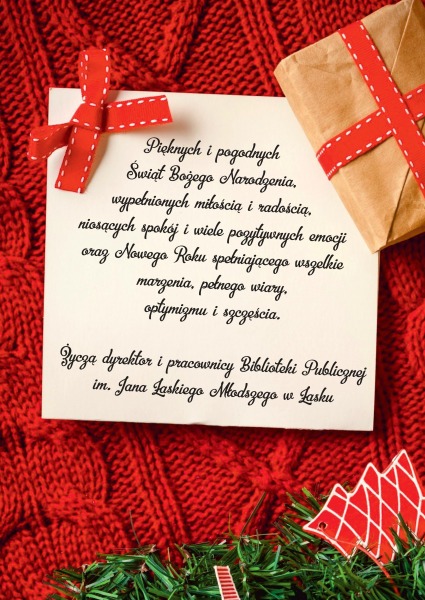 Pięknych i pogodnych
Świąt Bożego Narodzenia,
wypełnionych miłością i radością,
niosących spokój i wiele pozytywnych emocji
oraz Nowego Roku spełniającego wszelkie
marzenia, pełnego wiary,
optymizmu i szczęścia.
Życzą dyrektor i pracownicy Biblioteki Publicznej
im. Jana Łaskiego Młodszego w Łasku